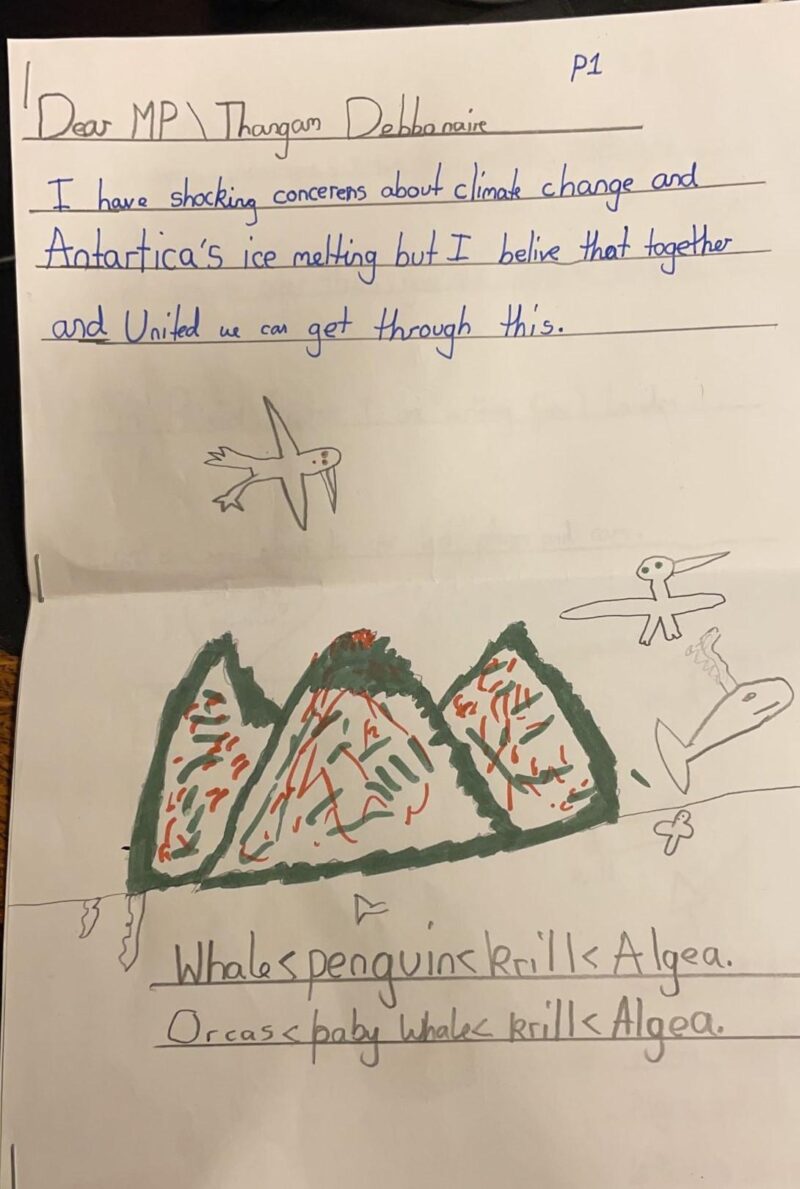 P1
Dear MP\ Thangam Debbonaire
I have shocking concerens about climate change and
Antartica's ice melting but I belive that together
and United we can get through this.
Whale<penguin<krill<Algea.
Orcas<baby whale<krill<Algea.